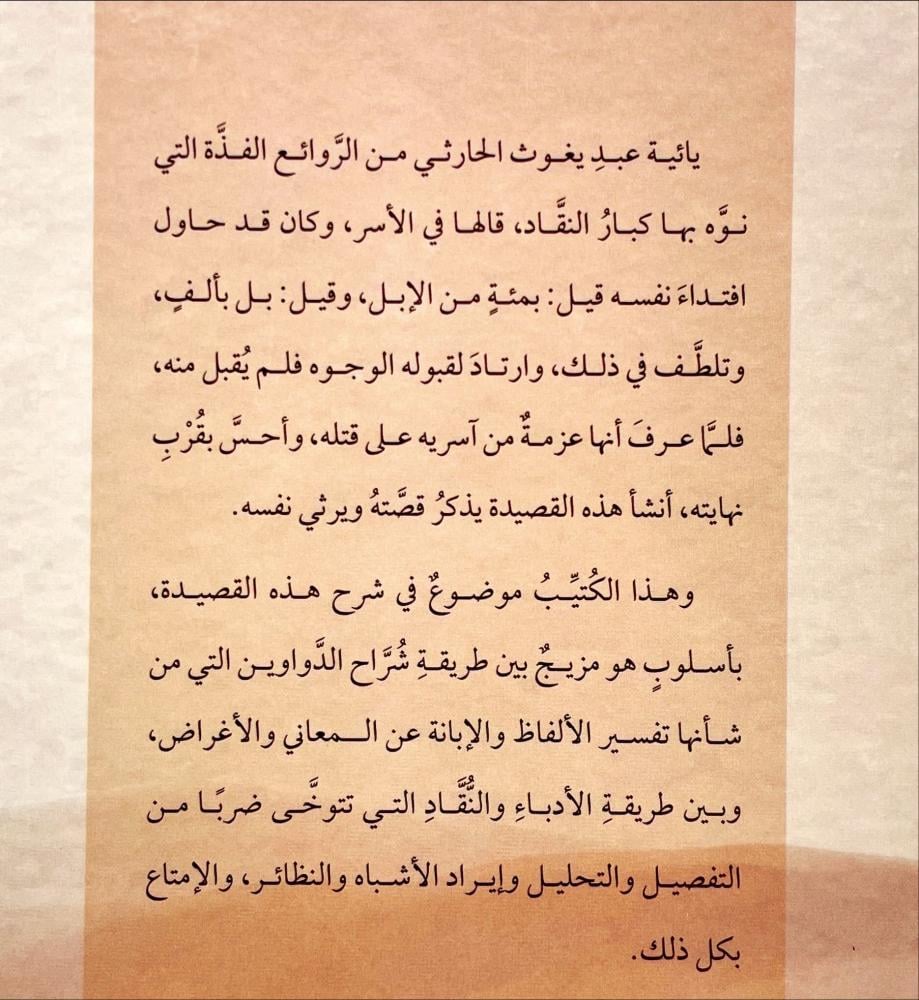 يائية عبدِ يغوث الحارثي من الرَّوائع الفذَّة التي
نوَّه بها كبارُ النقَّاد، قالها في الأسر، وكان قد حاول
افتداءَ نفسه قيل: بمئةٍ من الإبل، وقيل: بل بألفٍ،
وتلطَّف في ذلك، وارتادَ لقبوله الوجوه فلم يُقبل منه،
فلمَّا عرفَ أنها عزمةٌ من آسريه على قتله، وأحسَّ بقُرْبِ
نهايته، أنشأ هذه القصيدة يذكرُ قصَّتهُ ويرثي نفسه.
وهذا الكُتيِّبُ موضوعٌ في شرح هذه القصيدة،
بأسلوبٍ هو مزيجٌ بين طريقةِ شُرَّاح الدَّواوين التي من
شأنها تفسير الألفاظ والإبانة عن المعاني والأغراض،
وبين طريقةِ الأدباءِ والنُّقَّادِ التي تتوخَّى ضربًا من
التفصيل والتحليل وإيراد الأشباه والنظائر، والإمتاع
بكل ذلك.